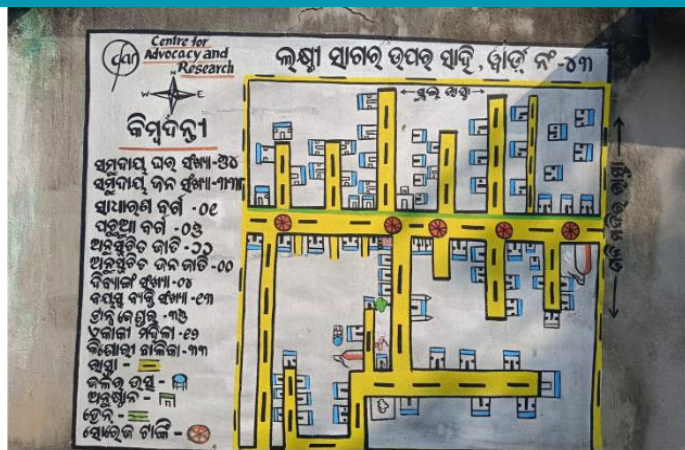 Centre for
Advocacy and
Research
ଲକ୍ଷ୍ମୀ ସାଗର ଉପର ସାହି, ୱାର୍ଡ଼ ନଂ -୪୩
N
W E
କିମ୍ବଦନ୍ତୀ
ସ୍କୁଲ ରାସ୍ତା
ସମୁଦାୟ ଘର ସଂଖ୍ୟା-
ସମୁଦାୟ ଜନ ସଂଖ୍ୟା-
ସାଧାରଣ ବର୍ଗ -୦୧
ପଛୁଆ ବର୍ଗ -୦୬
ଅନୁସୂଚିତ ଜାତି -
ଅନୁସୂଚିତ ଜନ ଜାତି -୦୦
ଦିବ୍ୟାଙ୍ଗ ସଂଖ୍ୟା -୦୪
ବୟସ୍କ ବ୍ୟକ୍ତି ସଂଖ୍ୟା -୧୩
ଏକାକୀ ମହିଳା -୧୭
କିଶୋରୀ ବାଳିକା -୩୩
ରାସ୍ତା -
ଜଳର ଉତ୍ସ -
ଅନୁଷ୍ଠାନ -
ଡ୍ରେନ୍ -
ସ୍ୱେରେଜ ଟାଙ୍କି -
ଶନି ମନ୍ଦିର ରାସ୍ତା